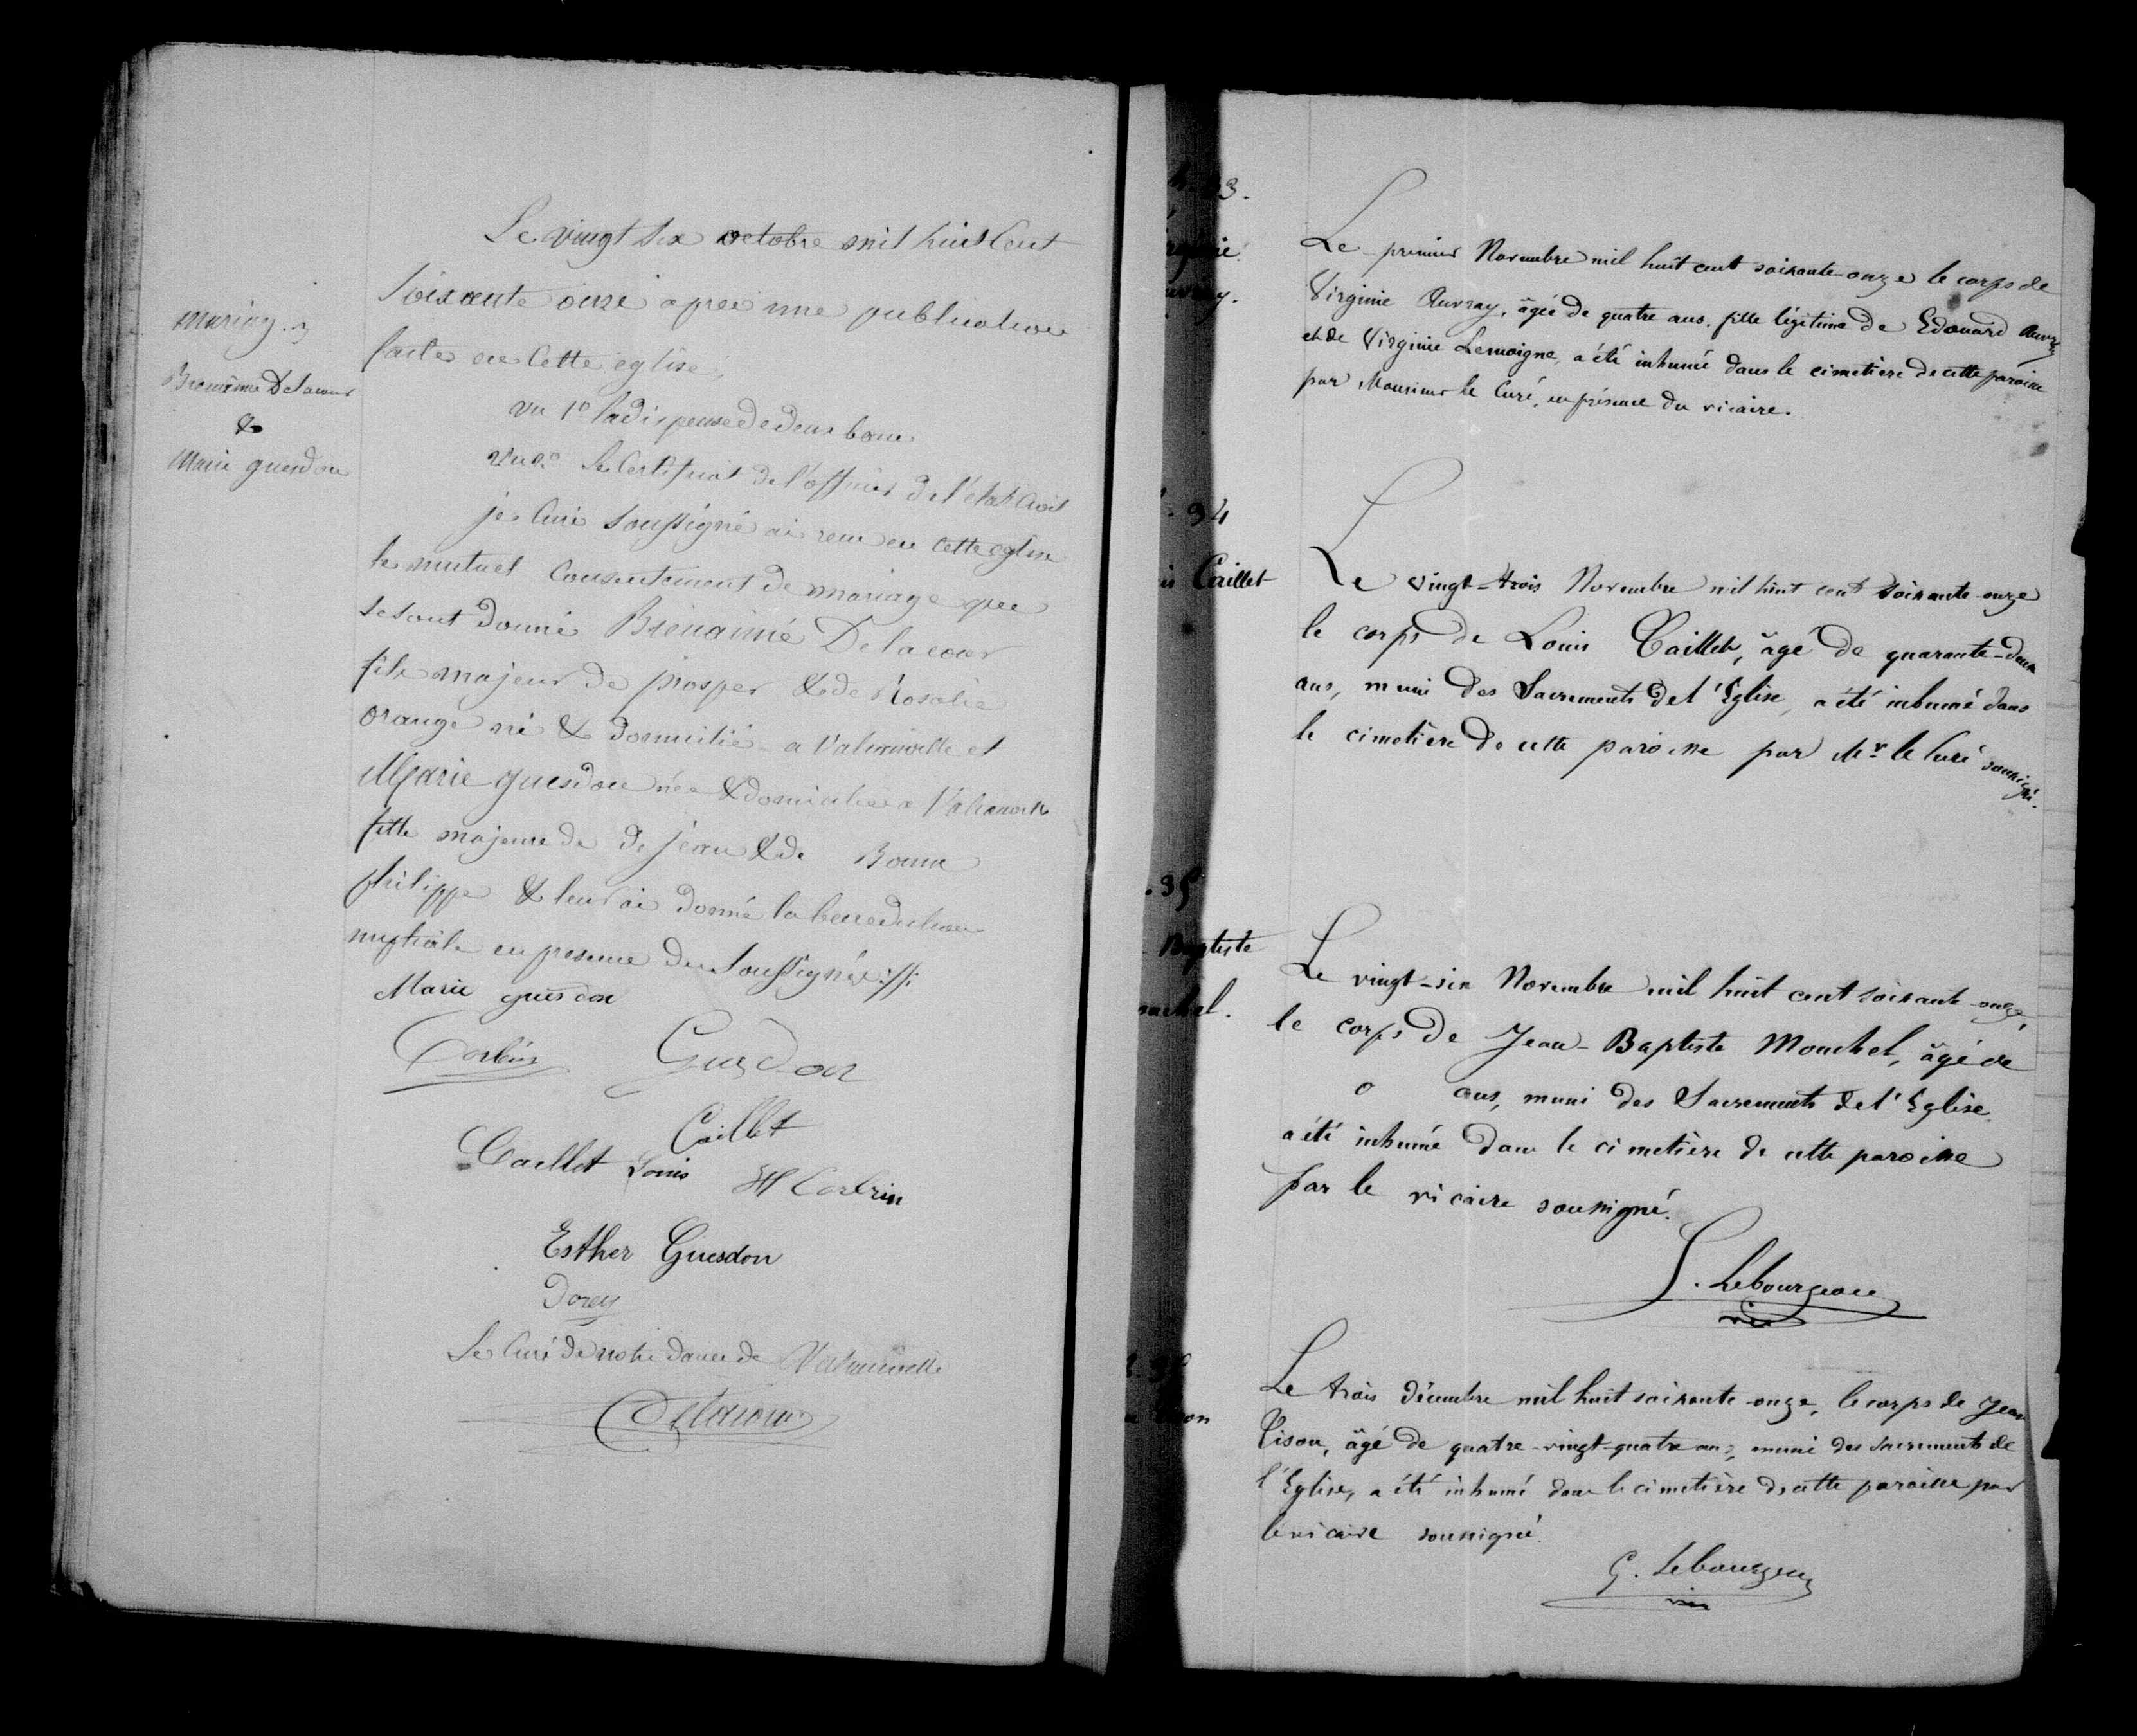 mariage
Bienaimé Delacour
&
Marie guesdon
Le vingt six octobre mil huit cent
soixante onze apres une publication
faite en cette eglise,
vu 1º la dispense de deux bans
vu 2º le certificat de l'officier de l'état civil
je curé soussigné ai recu en cette eglise
le mutuel consentement de mariage que
se sont donné Bienaimé Delacour
fils majeur de prosper & de Rosalie
orange né & domicilié a Valcanville et
Marie guesdon née & domiciliée a Valcanville
fille majeure de de jean & de Bonne
philippe & leur ai donné la benediction
nuptiale en presence des soussignés
Marie guesdon
Corbin Guesdon
Caillet
Caillet Louis Corbin
Esther Guesdon
Dorey
Le Curé de notre dame de Valcanville
Delacour
33.
Le premier Novembre mil huit cent soixante-onze le corps de
Virginie Auvray, âgée de quatre ans, fille légitime de Edouard Auvray
et de Virginie Lemoigne, a été inhumé dans le cimetière de cette paroisse
par Monsieur le Curé, en présence du vicaire.
34
Caillet
Le vingt-trois Novembre mil huit cent soixante-onze
le corps de Louis Caillet, âgé de quarante-deux
ans, muni des Sacrements de l'Eglise, a été inhumé dans
le cimetière de cette paroisse par Mr le Curé soussigné.
35
Baptiste
Mouchel.
Le vingt-six Novembre mil huit cent soixante-onze,
le corps de Jean-Baptiste Mouchel, âgé de
o ans, muni des Sacrements de l'Eglise
a été inhumé dans le cimetière de cette paroisse
par le vicaire soussigné.
Lebourgeois
vic
Le trois décembre mil huit soixante-onze, le corps de Jean
Tison, âgé de quatre-vingt-quatre ans, muni des sacrements de
l'Eglise, a été inhumé dans le cimetière de cette paroisse par
le vicaire soussigné.
G. Lebourgeois
vic